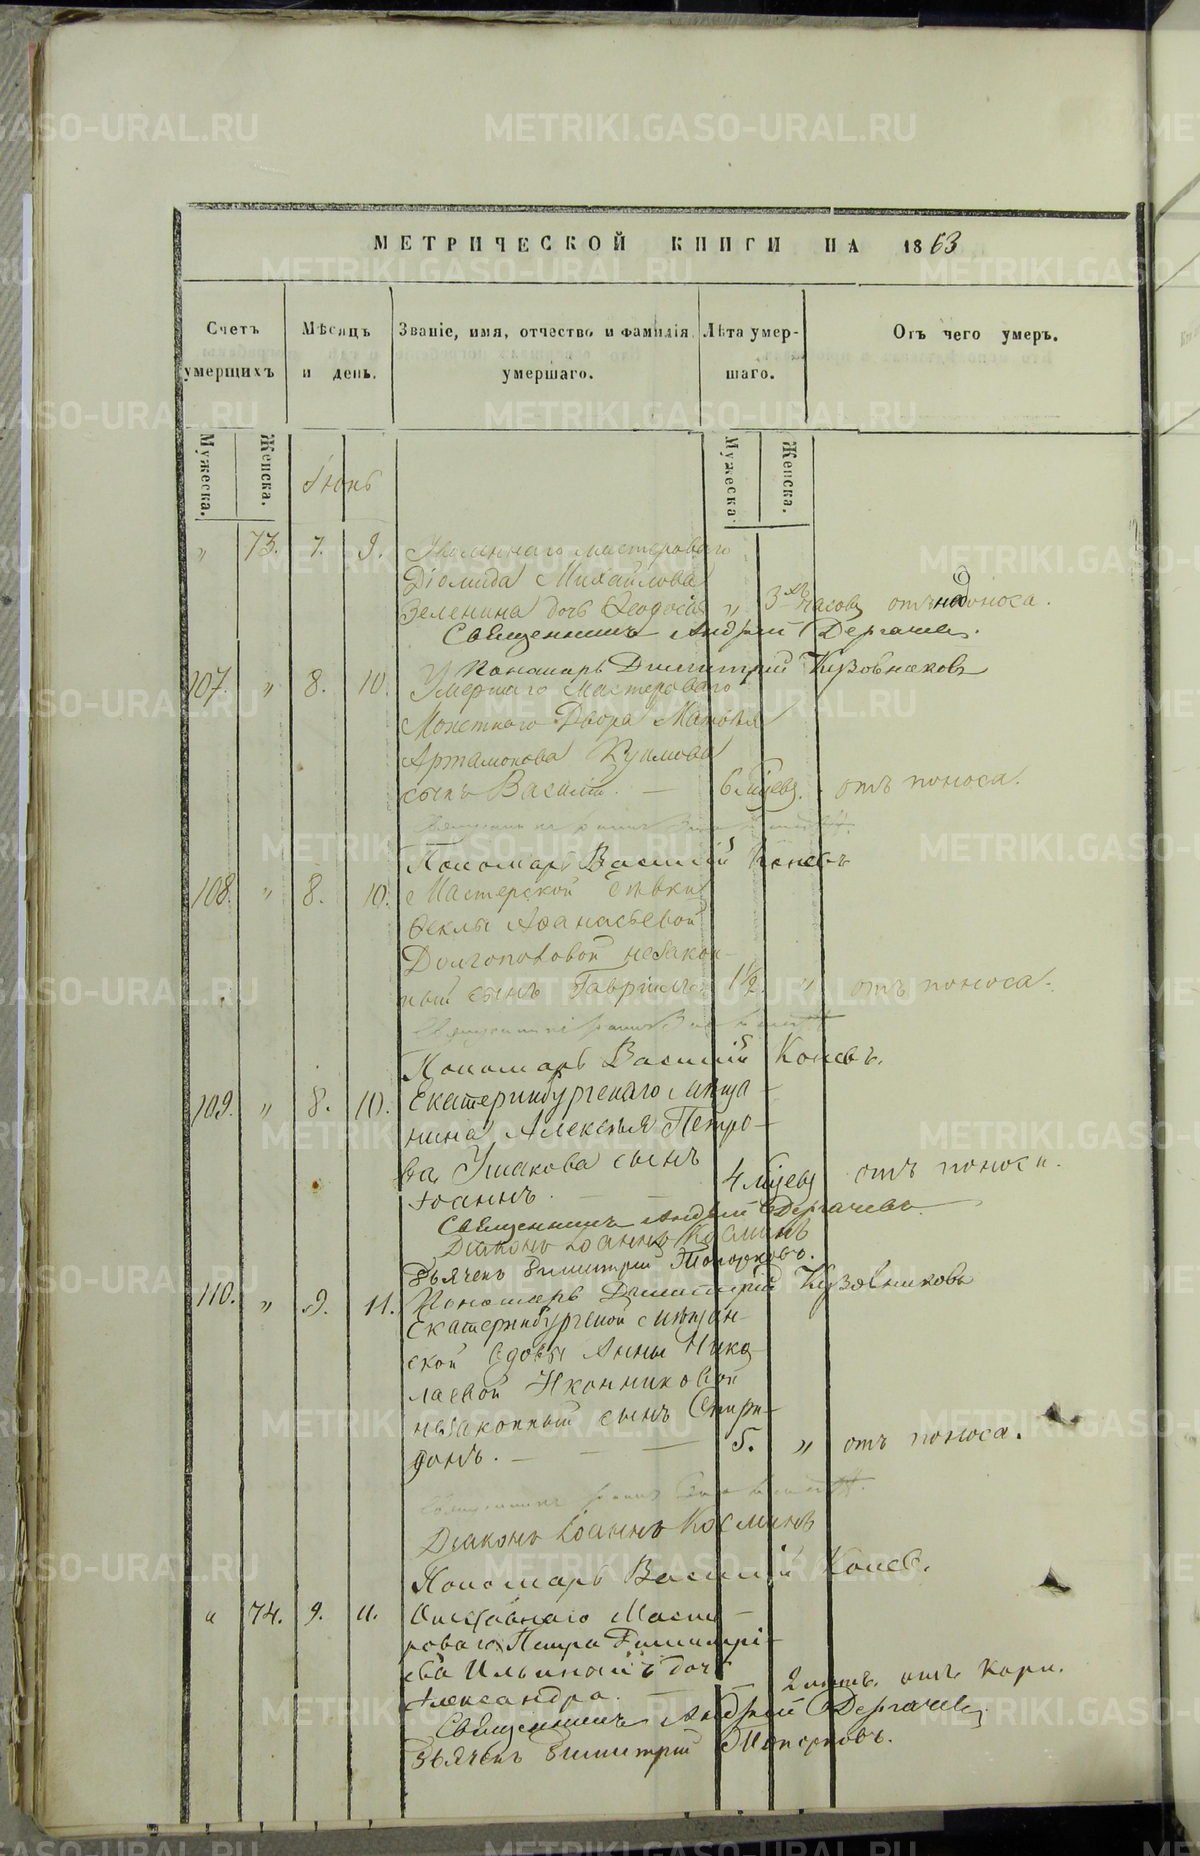 МЕТРИЧЕСКОЙ КНИГИ НА 1863
Счетъ умерщихъ
Мѣсяцъ и день.
Званіе, имя, отчество и фамилія умершаго.
Лѣта умершаго.
Отъ чего умеръ.
Мужеска.
Женска.
Іюнь
Мужеска
Женска.
" 73. 7. 9. мастероваго
Діомида Михайлова
Зеленина дочь Ѳеодосія " 3хъ часовъ отъ
Священникъ Андрей Дергачевъ.
Пономарь Димитрій Кузовниковъ
107. " 8. 10. Умершаго мастероваго
Монетнаго Двора Матвѣя
Артамонова
сынъ Василій. — 6 мѣсяц. отъ поноса.
Пономарь Василій Коневъ
108. " 8. 10. Мастерской дѣвки
Ѳеклы Аѳанасьевой
Долгополовой незакон-
ный сынъ Гавріилъ 1½ " отъ поноса.
Пономарь Василій Коневъ.
109. " 8. 10. Екатеринбургскаго мѣща-
нина Алексѣя Петро-
ва Ушакова сынъ
Іоаннъ. — — 4 мѣсяц отъ поноса.
Священникъ Андрей Дергачевъ
Діаконъ Іоаннъ Косминъ
Дьячекъ Димитрій Топорковъ.
Пономарь Димитрій Кузовниковъ
110. " 9. 11. Екатеринбургской мѣщан-
ской вдовы Анны Нико-
лаевой Иконниковой
незаконный сынъ Спири-
донъ. — — — 5. " отъ поноса.
Діаконъ Іоаннъ Косминъ
Пономарь Василій Коневъ.
" 74. 9. 11. Отставнаго Масте-
роваго Петра Димитрі-
ева Ильина дочь
Александра. — — 2 лѣтъ. отъ кори.
Священникъ Андрей Дергачевъ
Дьячекъ Димитрій Топорковъ.
METRIKI.GASO-URAL.RU